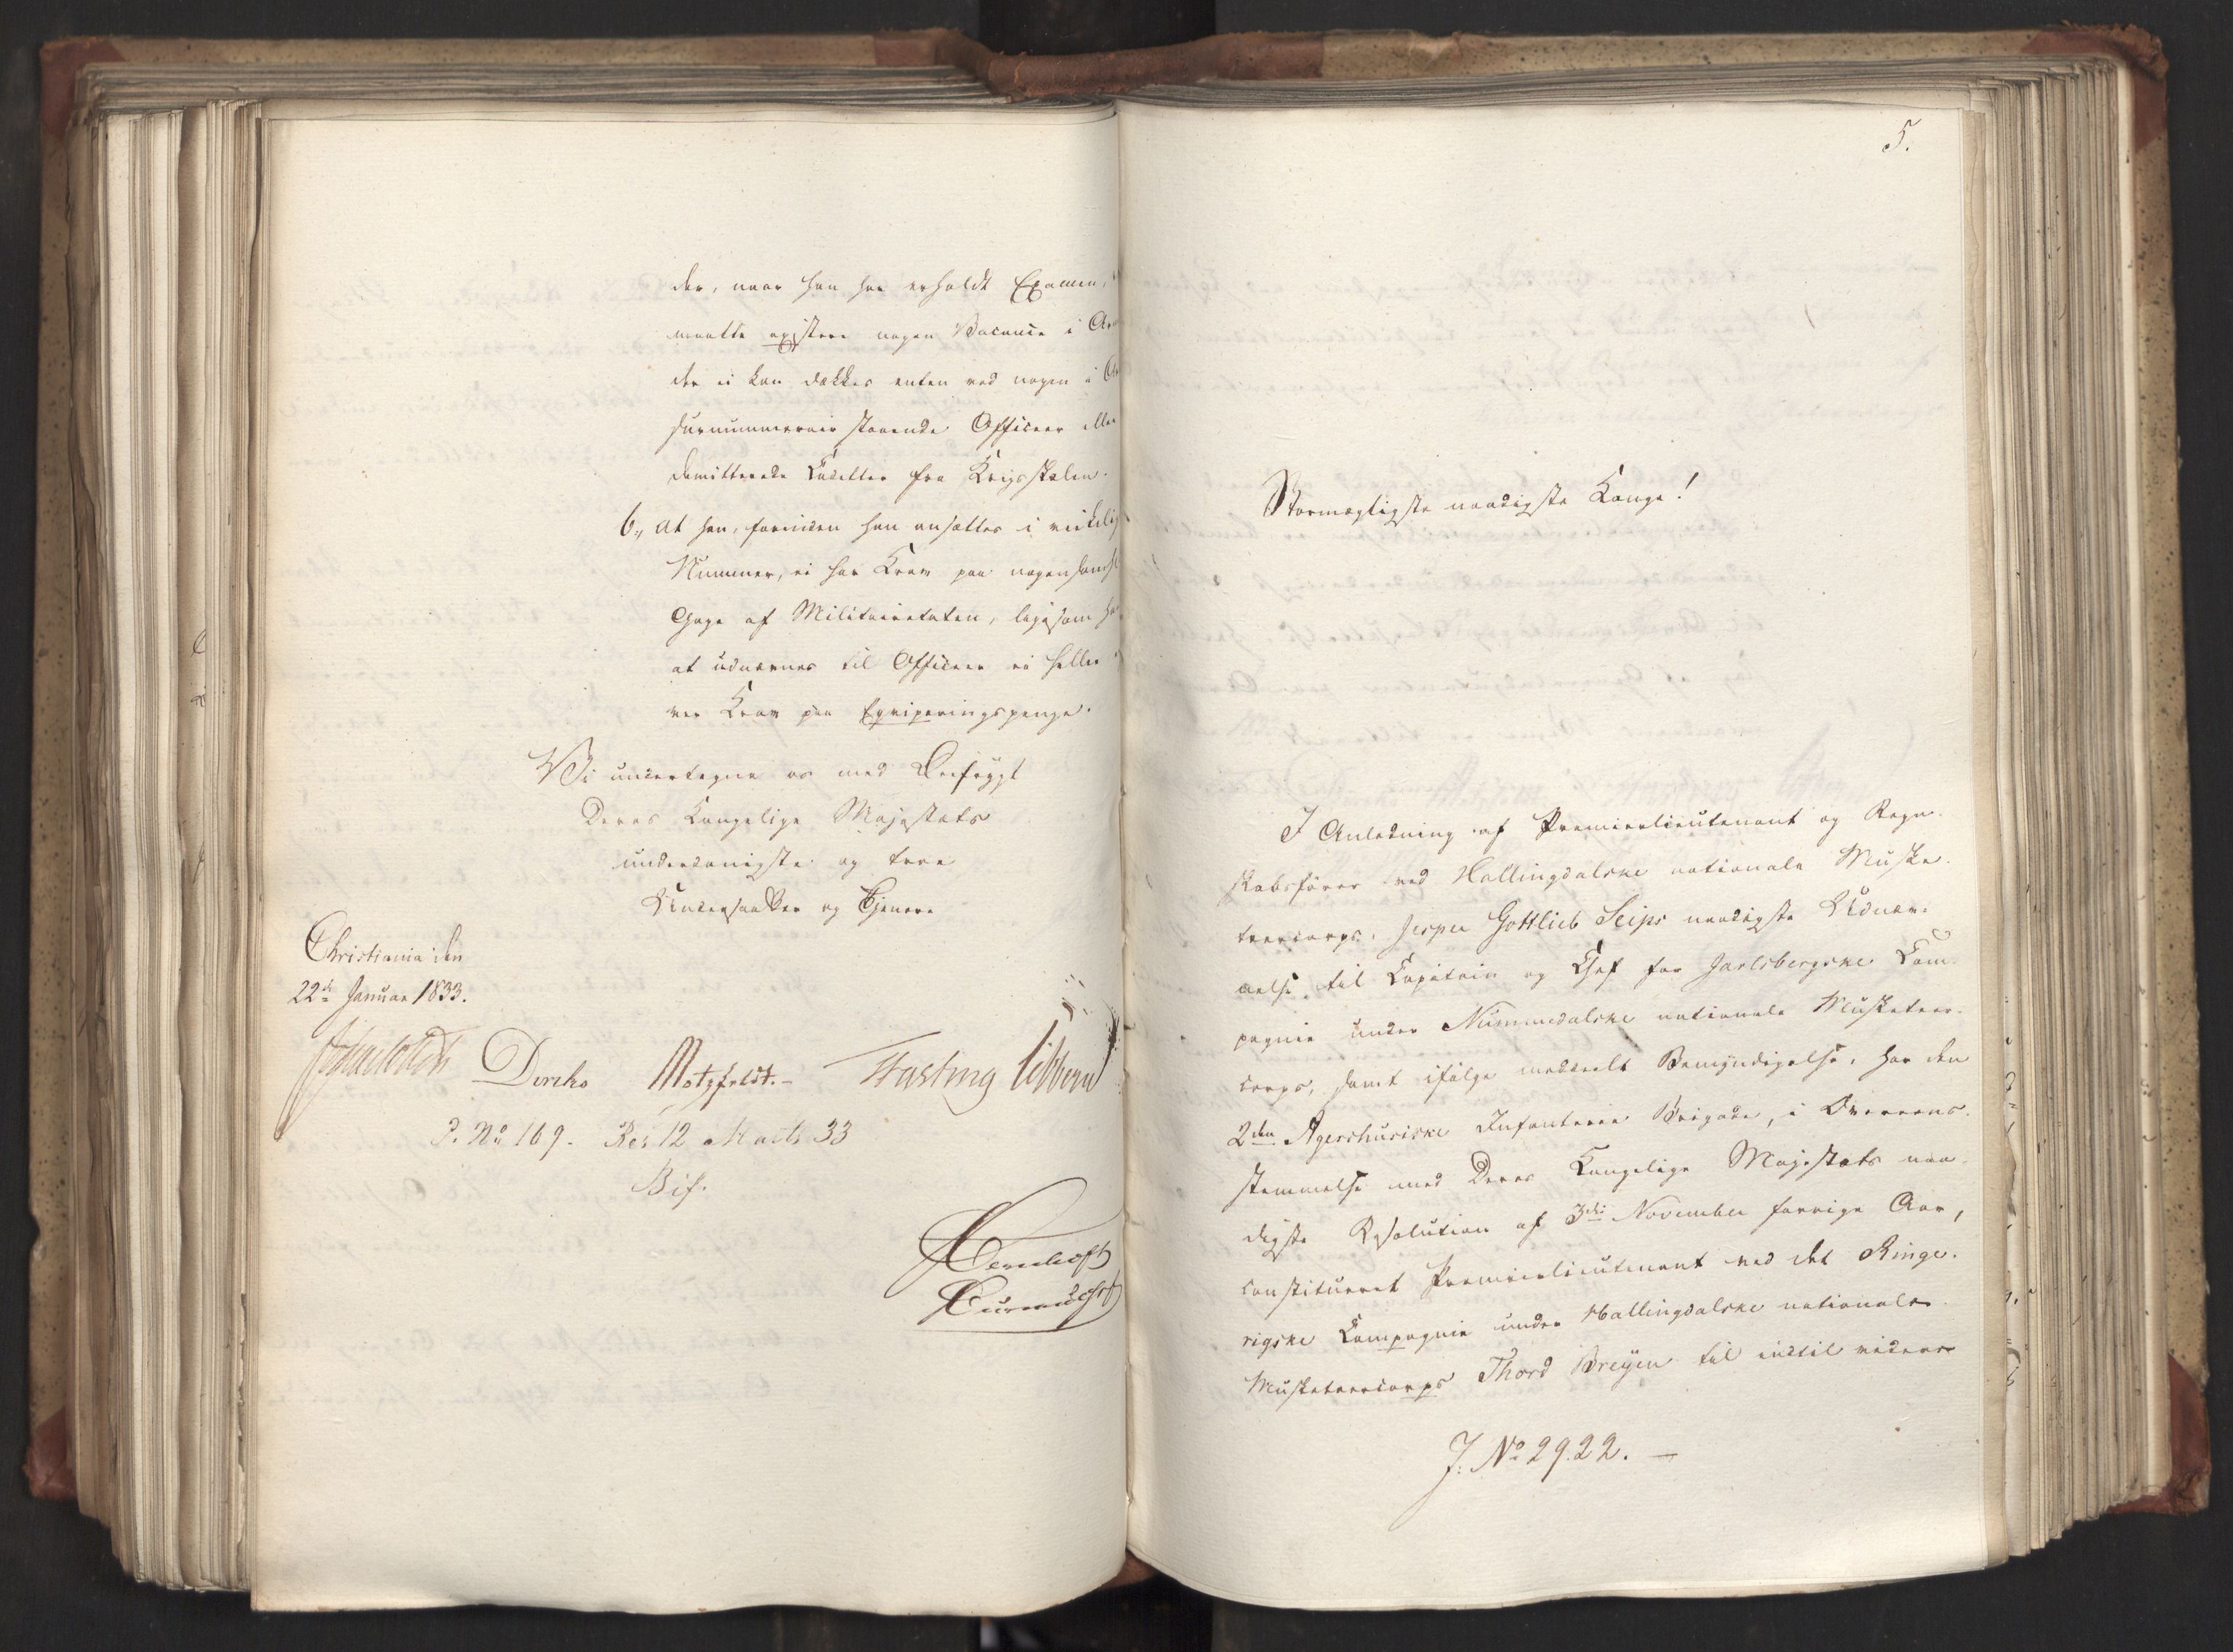 der, naar han har erholdt Examen,
maatte existere nogen Vacance i
der ei kan dækkes enten ved nogen i
surnummerair staaende Officeer eller
demitterede Cadetter fra Krigsskolen.
6, at han, forinden han ansættes i virkelig
Nummer, ei har Krav paa nogensomhelst
Gage af Militairetaten, ligesom
at udnævnes til Officeer ei heller
ver Krav paa Eqviperingspenge.
Vi undertegne os med Dybfrygt
Deres Kongelige Majestæts
underdanigste og troe
Undersaatter og Tjenere
Christiania den
22de Januar 1833.
Diriks Motzfeldt.- Fasting Sibbern
P. No 169. Res 12 Marts 33
Bif.
5.
Stormægtigste naadigste Konge!
I Anledning af Premierlieutenant og Regn-
skabsfører ved Hallingdalske nationale Muske-
teercorps, Jesper Gottlieb Seips naadigste Udnæv-
nelse til Capitain og Chef for Jarlsbergske Com-
pagnie under Nummedalske nationale Musketeer-
corps, samt ifølge meddeelt Bemyndigelse, har den
2den Agershusiske Infanterie Brigade, i Overeens-
stemmelse med Deres Kongelige Majestæts naa-
digste Resolution af 3die November forrige Aar,
constitueret Premierlieutenant ved det Ringe-
rigske Compagnie under Hallingdalske nationale
Musketeercorps Thord Breyen til indtil videre
J. No 2922. -